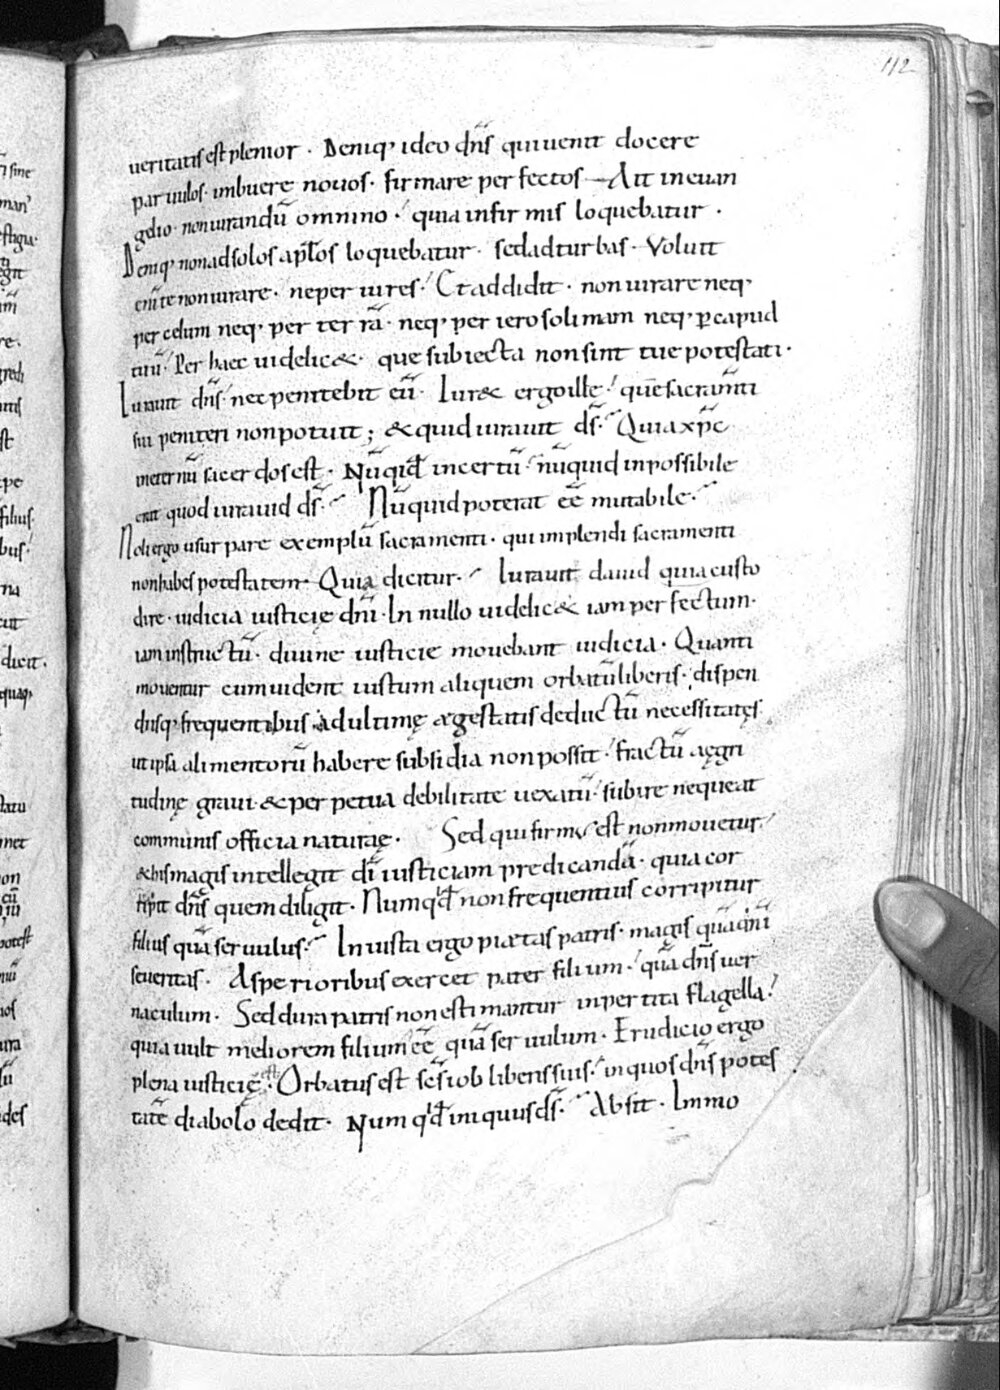 112
ueritatis est plenior · Deniq; ideo dn̄s qui uenit docere
paruulos · imbuere nouos · firmare perfectos — Ait in euan
gelio · non iurandū omnino · quia infirmis loquebatur ·
Deniq; non ad solos apl̄os loquebatur · sed ad turbas · Voluit
eni te non iurare · ne periures · Et addidit · non iurare neq;
per celum neq; per terrā · neq; per ierosolimam neq; ꝑ capud
tuū · Per haec uidelic& · que subiecta non sint tue potestati ·
Iurauit dn̄s · nec penitebit eū · Iur& ergo ille · quē sacram̄ti
sui peniteri non potuit ; & quid iurauit ds̄ · Quia xp̄c
in eternū sacerdos est · Nūqid incertū · nūquid inpossibile
erat quod iurauid ds̄ · Nūquid poterat ēē mutabile ·
Noli ergo usurpare exemplū sacramenti · qui implendi sacramenti
non habes potestatem · Quia dicitur · Iurauit dauid quia custo
dire · iudicia iusticię dn̄i · In nullo uidelic& iam perfectum ·
iam instructū · diuine iusticie mouebant iudicia · Quanti
mouentur cum uident iustum aliquem orbatū liberis · dispen
diisq; frequentibus ad ultimę ægestatis deductū necessitatęs
ut ipsa alimentorū habere subsidia non possit · fractū aęgri
tudinę graui · & perpetua debilitate uexatū · subire nequeat
communis officia naturaę · Sed qui firmus est non mouetur
& his magis intellegit dī iusticiam predicandā · quia cor
ripit dn̄s quem diligit · Numqd non frequentius corripitur
filius quā seruulus · In iusta ergo piætas patris · magis quā
seueritas · Asperioribus exercet pater filium · quā dn̄s uer
naculum · Sed dura patris non estimantur inpertita flagella ·
quia uult meliorem filium ēē quā seruulum · Erudicio ergo
plena iusticię est · Orbatus est sc̄s iob liberis suis · in quos dn̄s potes
tatē diabolo dedit · Numqd iniquus ds̄ · Absit · Immo